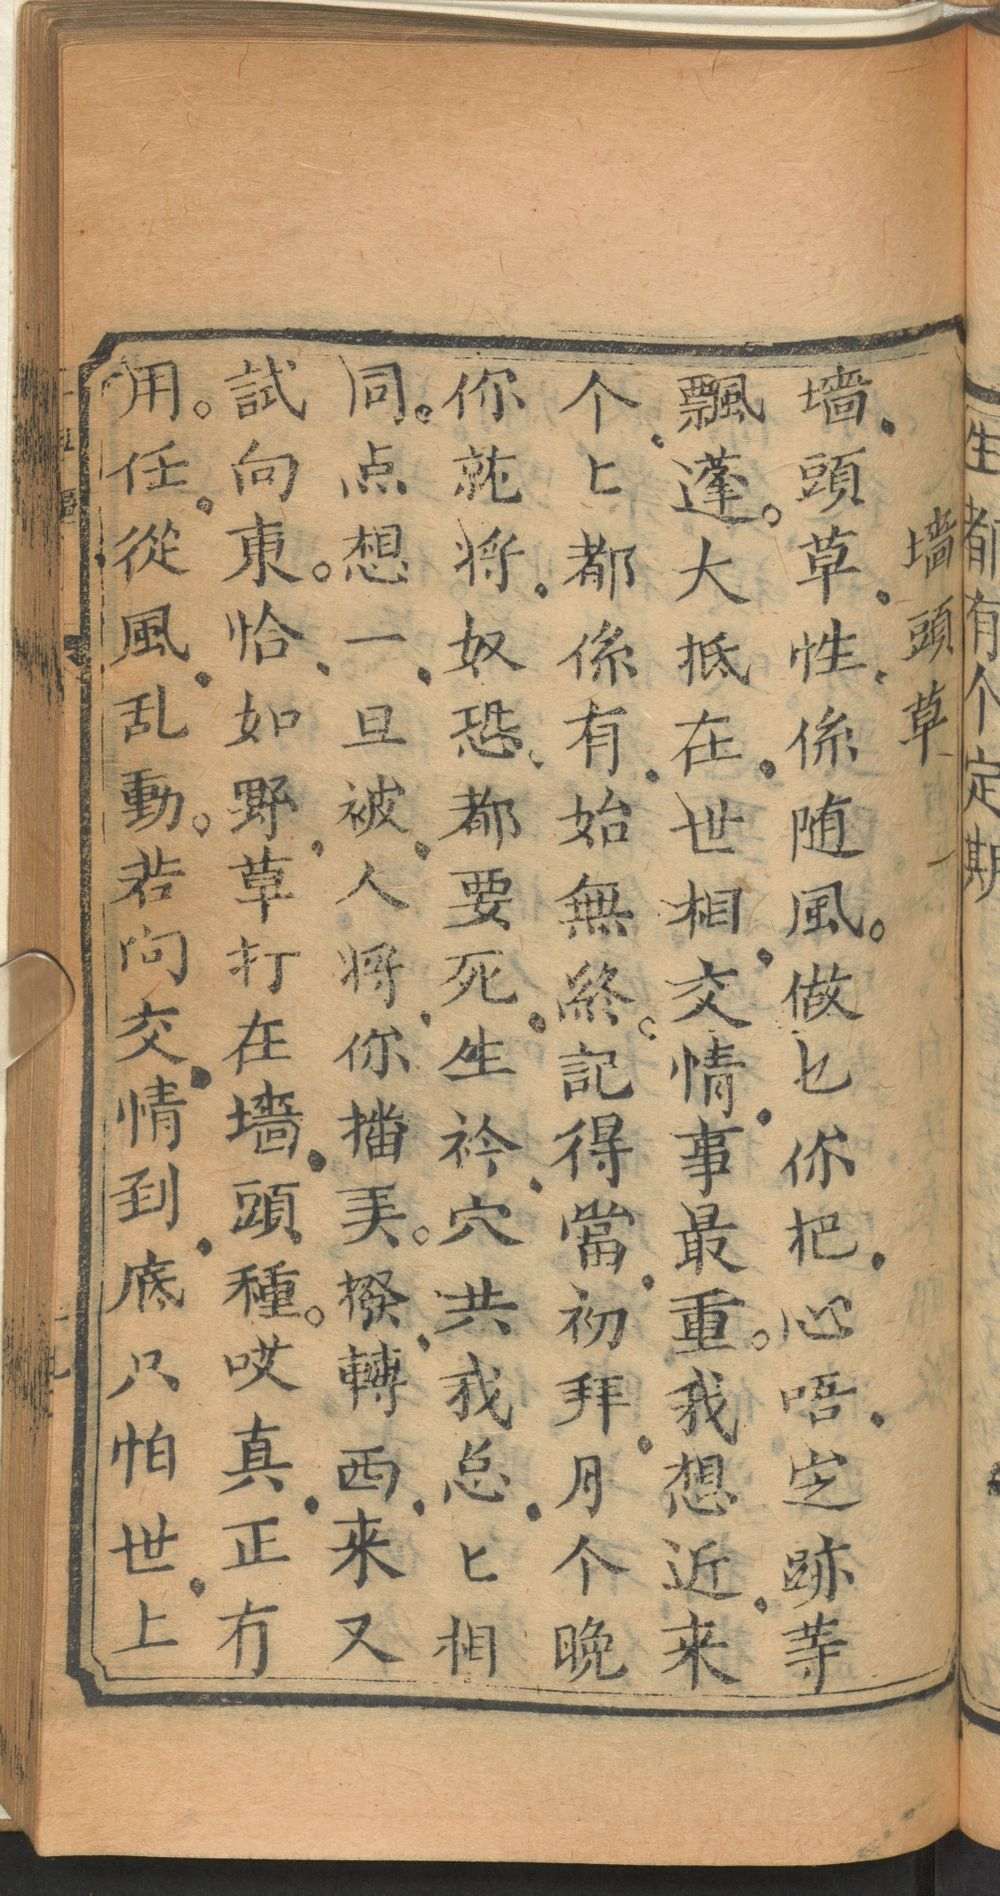 生都有个定期
墻頭草
墻頭草性係随風。做乜你把心唔定跡䓁
飄蓬。大抵在世相交情事最重。我想近来
个匕都係有始無終。記得當初拜月个晚
你就将奴恐都要死生衿穴共我总匕相
同。点想一旦被人将你擋美。撥轉西来又
試向東。恰如野草打在墻頭種。哎真正冇
用。任從風乱動。若问交情到底只怕世上